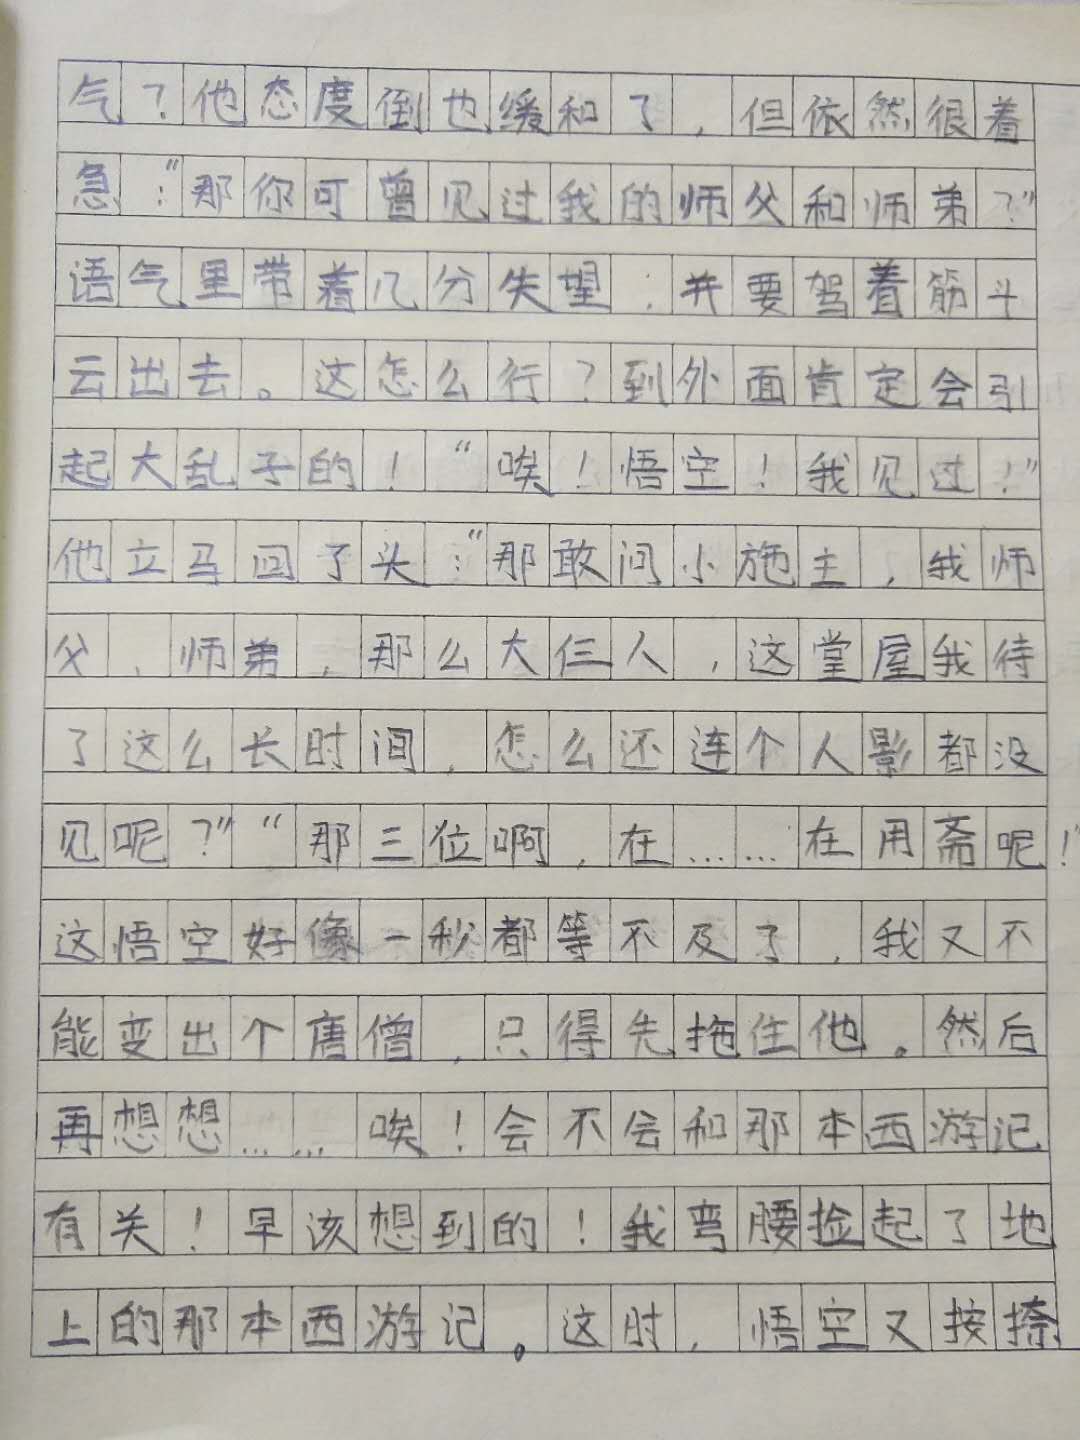 气？他态度倒也缓和了，但依然很着
急：“那你可曾见过我的师父和师弟？”
语气里带着几分失望，并要驾着筋斗
云出去。这怎么行？到外面肯定会引
起大乱子的！“唉！悟空！我见过！”
他立马回了头：“那敢问小施主，我师
父、师弟，那么大仨人，这堂屋我待
了这么长时间，怎么还连个人影都没
见呢？”“那三位啊，在……在用斋呢！”
这悟空好像一秒都等不及了，我又不
能变出个唐僧，只得先拖住他。然后
再想想……唉！会不会和那本西游记
有关！早该想到的！我弯腰捡起了地
上的那本西游记。这时，悟空又按捺